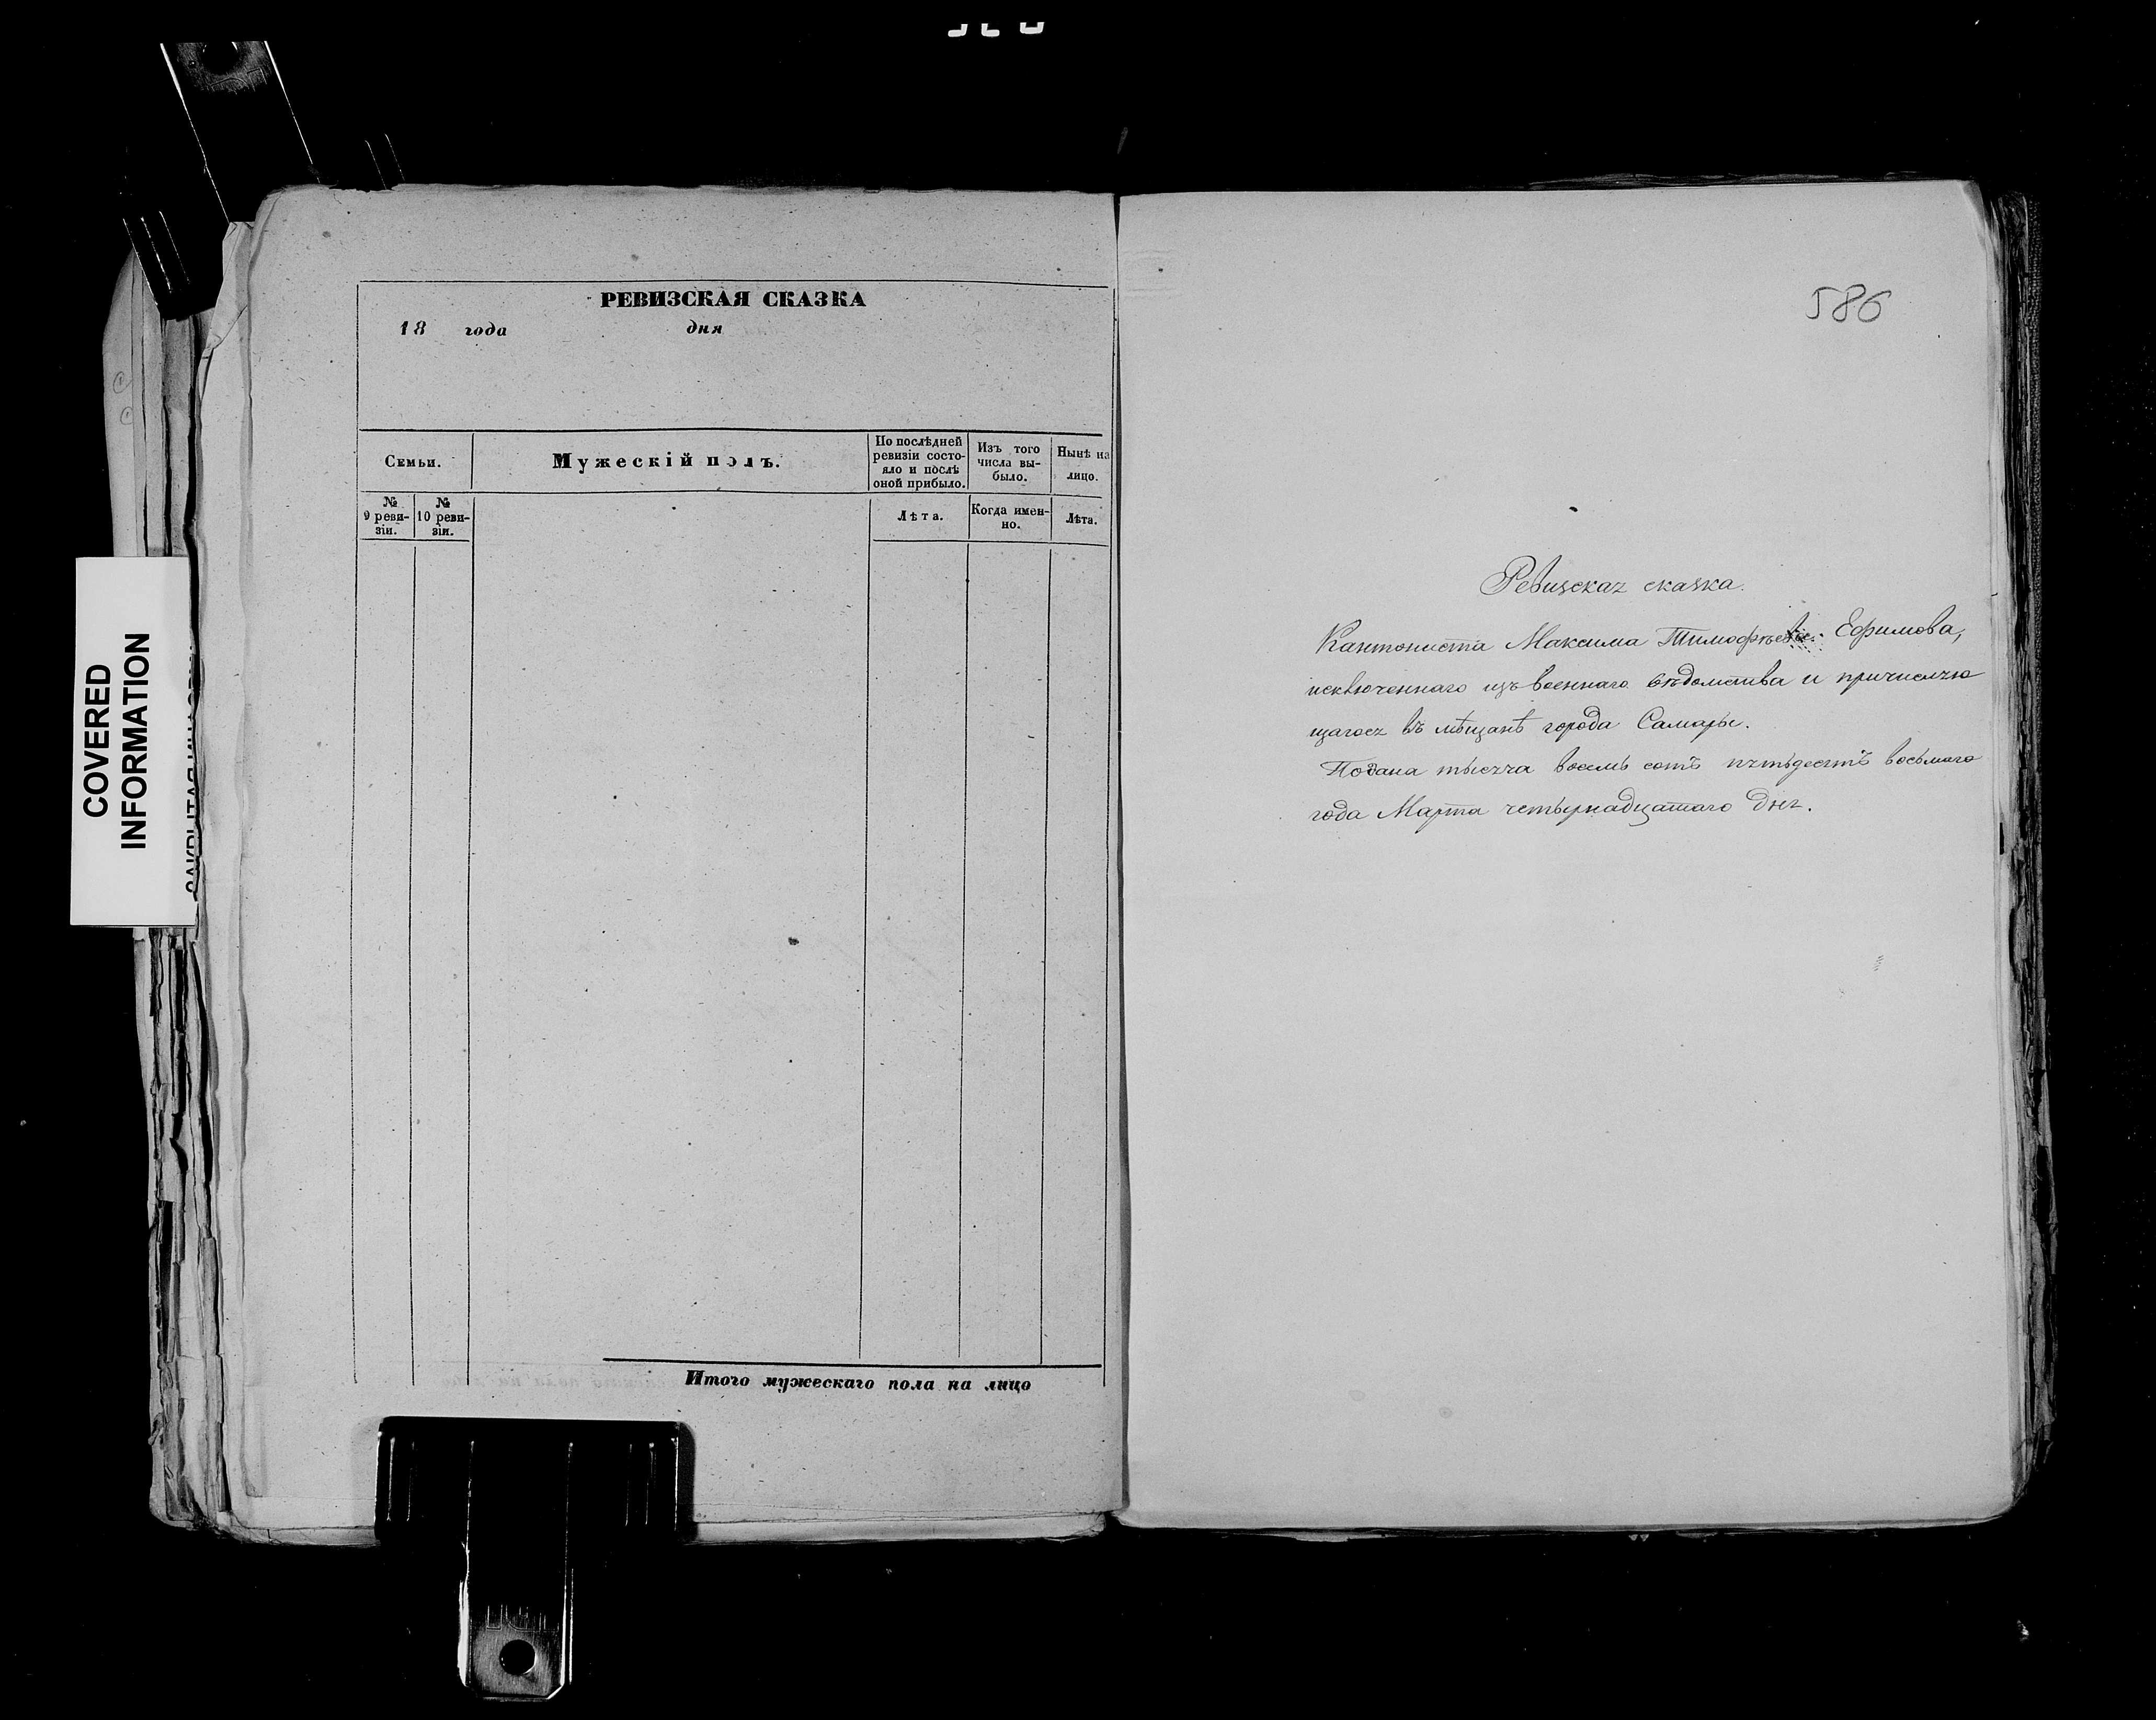 РЕВИЗСКАЯ СКАЗКА
18 года дня
Семьи.
Мужескій полъ.
По послѣдней
ревизіи состо-
яло и послѣ
оной прибыло.
Изъ того
числа вы-
было.
Нынѣ на
лицо.
№
9 реви-
зіи.
№
10 реви-
зіи.
Лѣта.
Когда имен-
но.
Лѣта.
Итого мужескаго пола на лицо
COVERED
INFORMATION
586
Ревизская сказка.
Кантониста Максима Тимофѣева Ефимова,
исключеннаго изъ военнаго вѣдомства и причисляю
щагося въ мѣщанѣ города Самары.
Подана тысяча восемь сотъ пятьдесятъ восьмаго
года Марта четырнадцатаго дня.